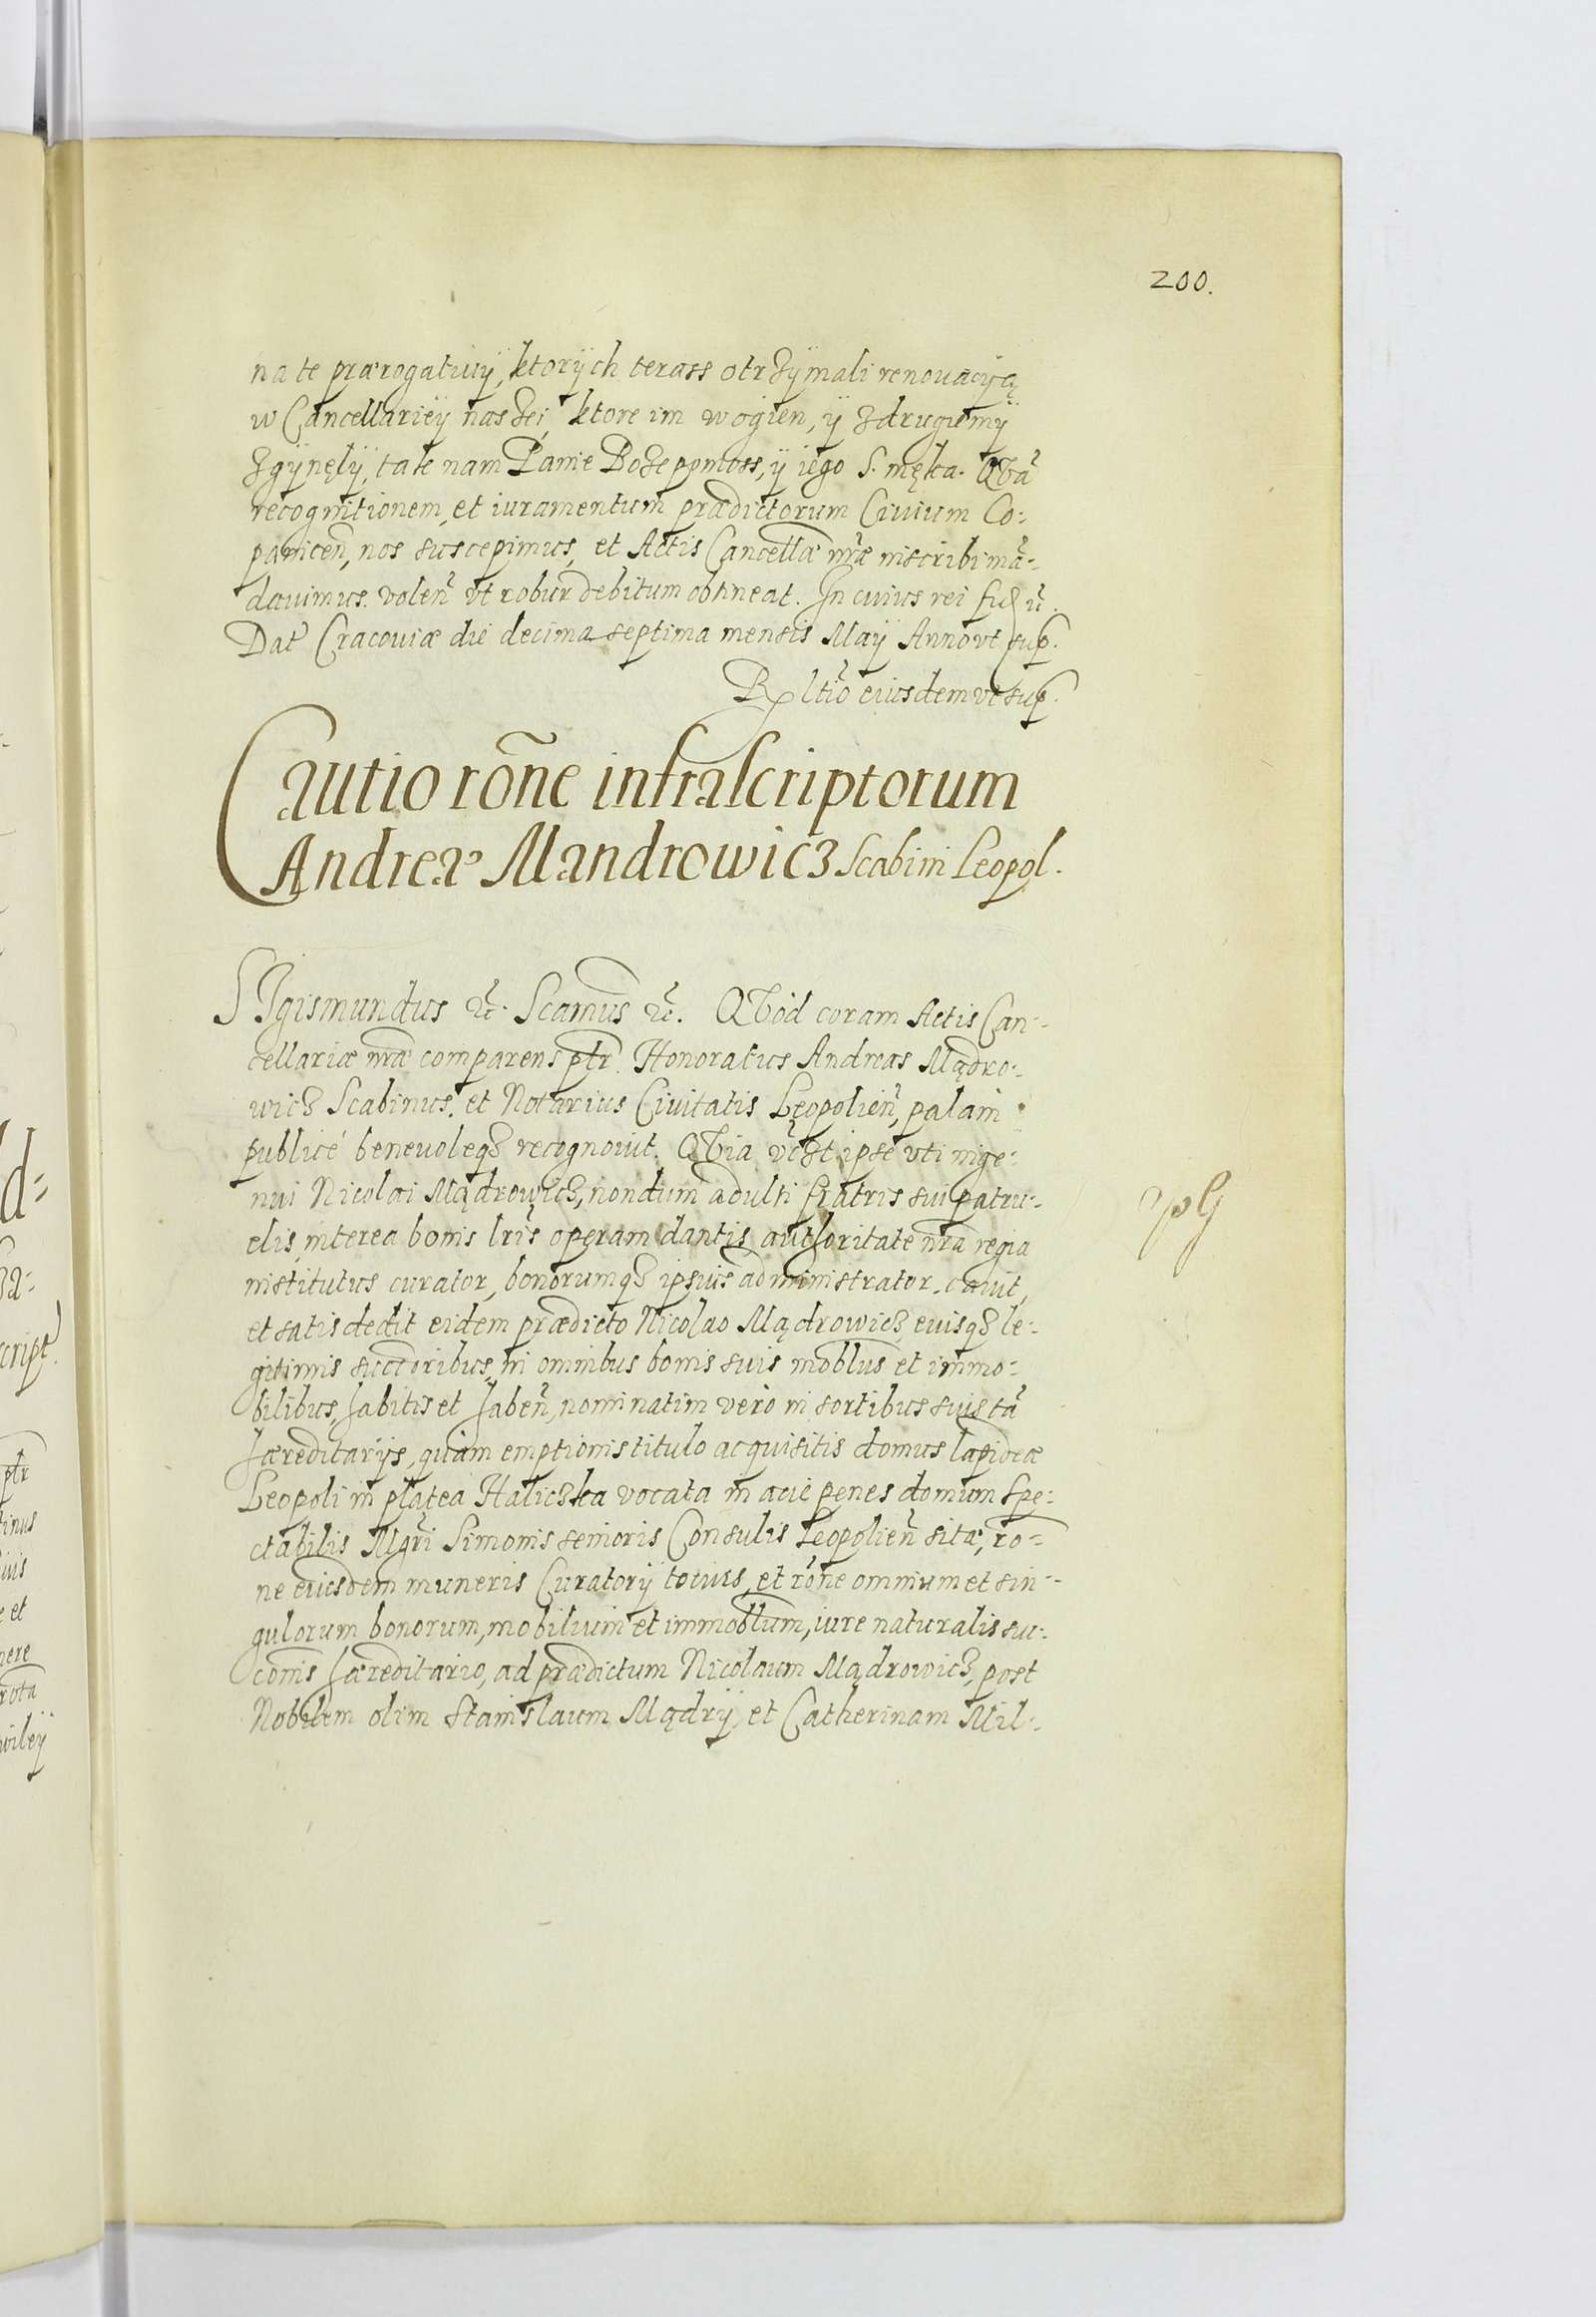 200.
na te prærogatiwÿ, ktorÿch terass otrzÿmali renouacÿą
w Cancellariëÿ naszei, ktore im w ogien, ÿ zdrugiemÿ
zgÿnęłÿ, tak nam Panie Boze pomoss, ÿ iego S. męka. Qvã
recognitionem, et iuramentum prædictorum Ciuium Co-
panicen̄, nos suscepimus, et Actis Cancellæ nr̃æ inscribi mã-
dauimus. volen̄ vt robur debitum obtineat. In cuius rei
Dat̃ Cracouiæ die decima septima mensis Maÿ Anno vt sup.
Rltio eiusdem vt sup.
Cautio rõne infrascriptorum
Andreæ Mandrowicz Scabini Leopol.
SIgismundus &c. Scamus &c. Qvòd coram Actis Can-
cellariæ nræ comparens ptr. Honoratus Andreas Mądro-
wicz Scabinus et Notarius Ciuitatis Leopolien̄, palam
publicè beneuoleqз recognouit. Qvia ipse vti inge-
nui Nicolai Mądrowicz, nondum adulti fratris sui patru-
elis, interea bonis lris operam dantis authoritate nra regia
institutus curator, bonorumqз ipsius administrator, cauit,
et satisdedit eidem prædicto Nicolao Mądrowicz, eiusqз le-
gitimis succoribus, in omnibus bonis suis moblus et immo-
bilibus, habitis et haben̄, nominatim verò in sortibus suis tã
hæreditarÿs, quàm emptionis titulo acquisitis domus lapideæ
Leopoli in platea Haliczka vocata in acie penes domum Spe-
ctabilis Mgri Simonis senioris Consulis Leopolien̄ sitæ, ro-
ne eiusdem muneris Curatorÿ totius, et rõne omnium et sin-
gulorum bonorum, mobilium et immoblum, iure naturalis suc-
conis hæreditario, ad prædictum Nicolaum Mądrowicz, post
Nobilem olim Stanislaum Mądrÿ, et Catherinam Mil-